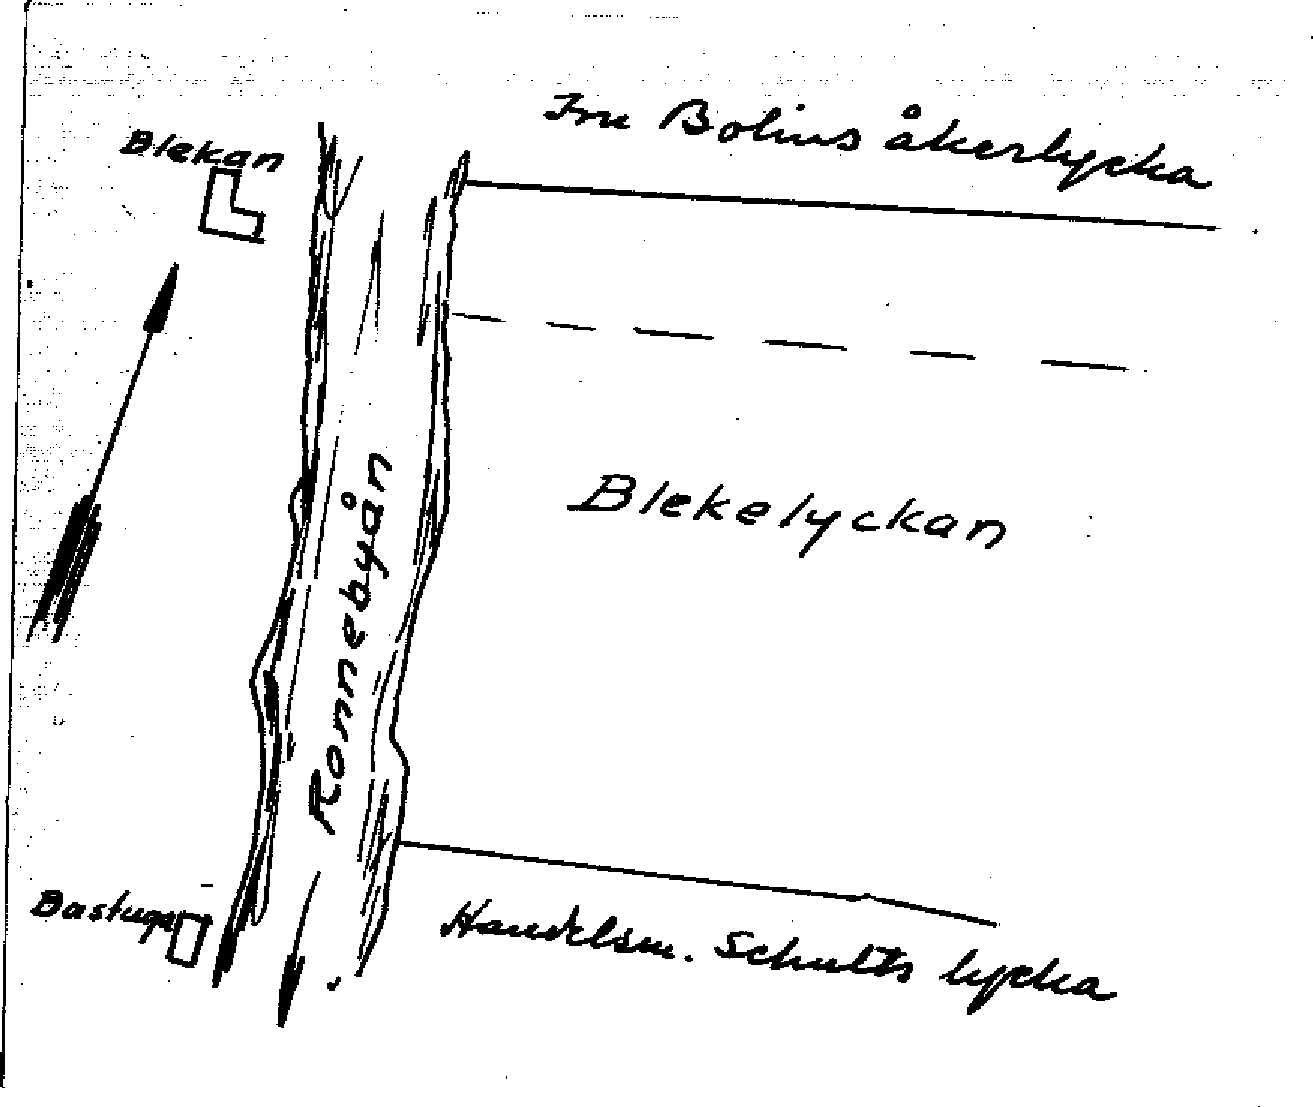 Fru Bolius åkerlycka
Blekan
Blekelyckan
Ronnebyån
Bastuga
Handelsm. Schults lycka